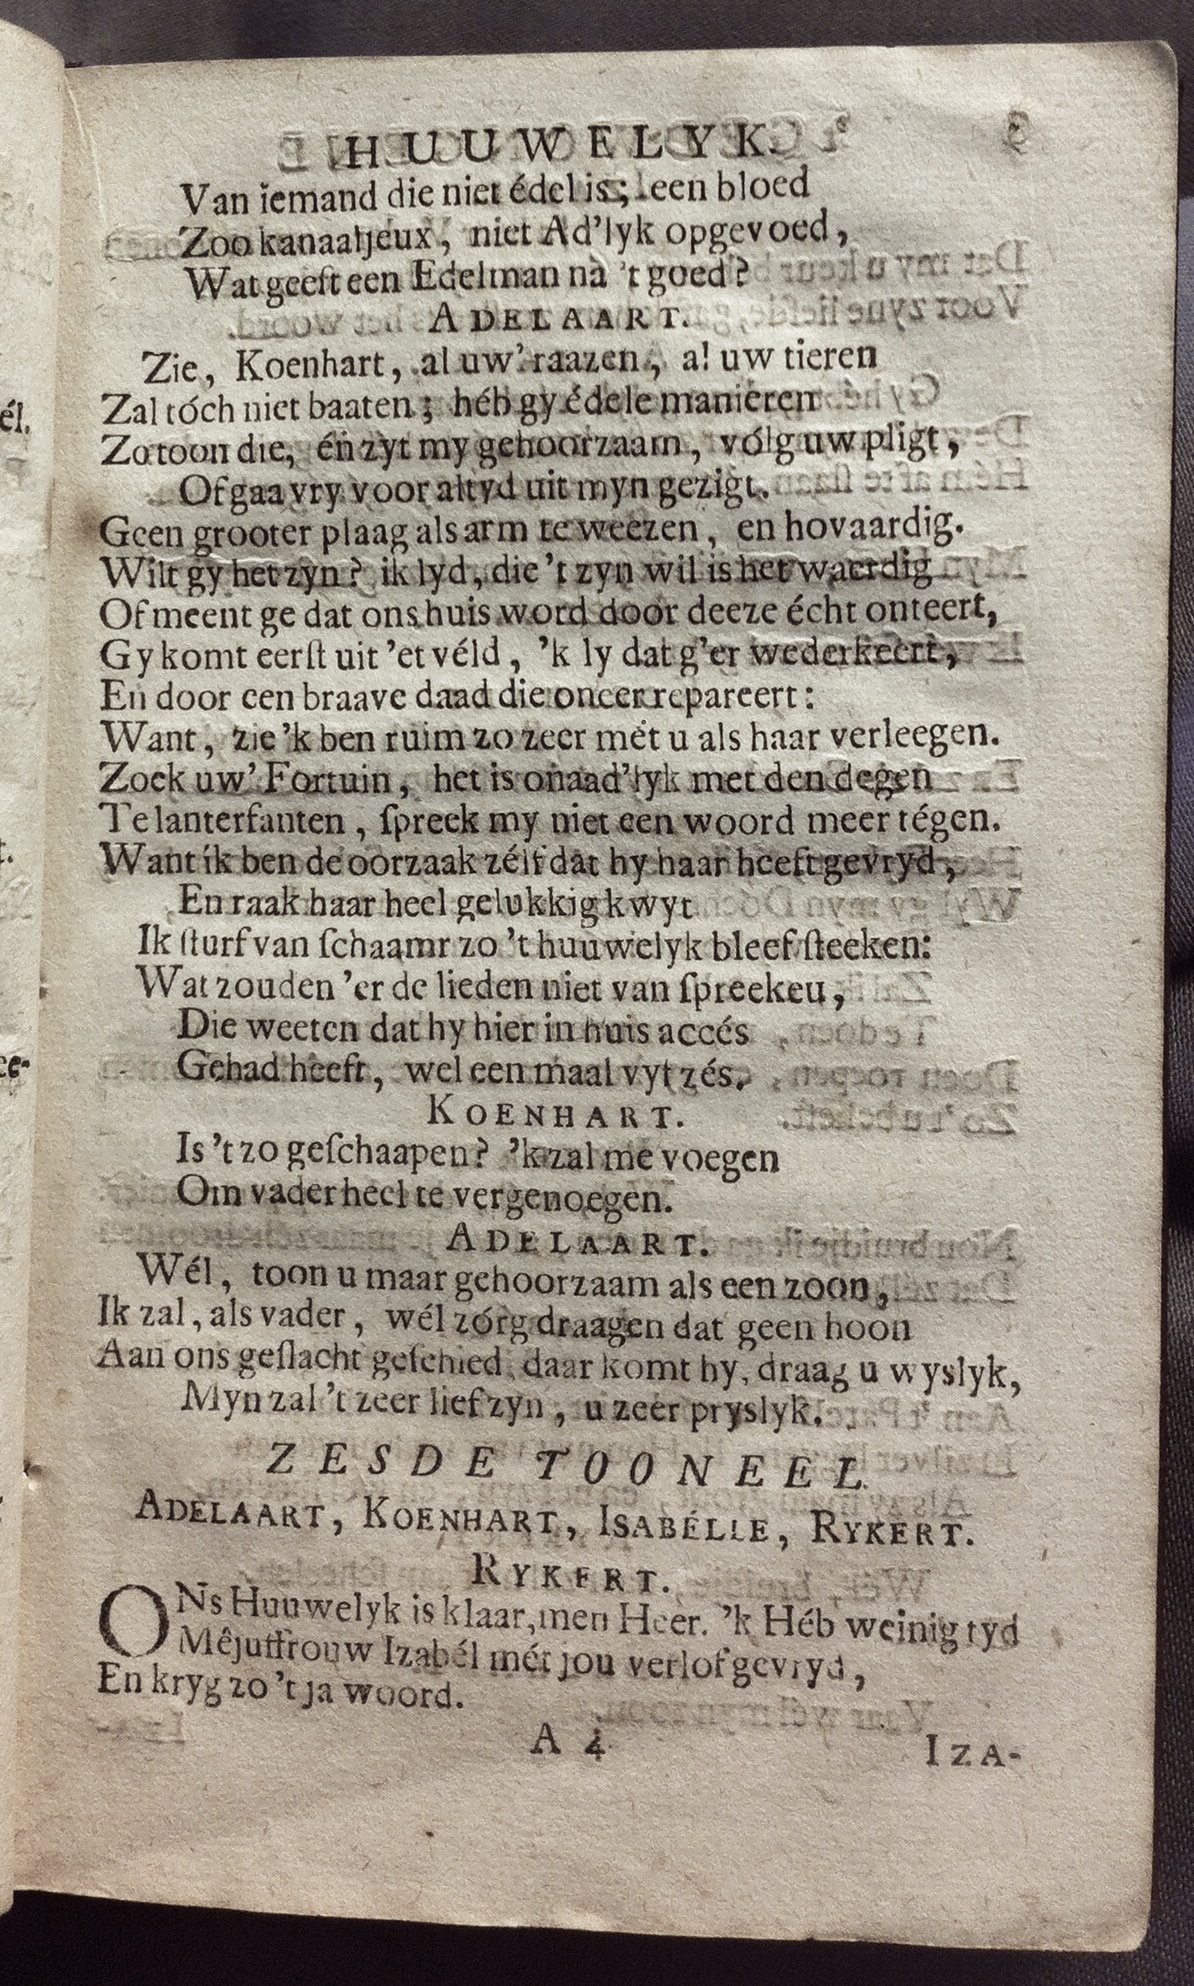 HUUWELYK. 9
Van iemand die niet édel is; een bloed
Zoo kanaaljeux, niet Ad'lyk opgevoed,
Wat geeft een Edelman na 't goed?
ADELAART.
Zie, Koenhart, al uw' raazen, al uw tieren
Zal tóch niet baaten; héb gy édele manieren
Zo toon die, én zyt my gehoorzaam, vólg uw pligt,
Of gaa vry voor altyd uit myn gezigt.
Geen grooter plaag als arm te weezen, en hovaardig.
Wilt gy het zyn? ik lyd, die 't zyn wil is het waerdig
Of meent ge dat ons huis word door deeze écht onteert,
Gy komt eerst uit 'et véld, 'k ly dat g'er wederkeert,
En door een braave daad die oneer repareert:
Want, zie 'k ben ruim zo zeer mét u als haar verleegen.
Zoek uw' Fortuin, het is onaad'lyk met den degen
Te lanterfanten, spreek my niet een woord meer tégen.
Want ik ben de oorzaak zélf dat hy haar heeft gevryd,
En raak haar heel gelukkig kwyt
Ik sturf van schaamt zo 't huuwelyk bleef steeken:
Wat zouden 'er de lieden niet van spreeken,
Die weeten dat hy hier in huis accés
Gehad heeft, wel een maal vyf zés.
KOENHART.
Is 't zo geschaapen? 'k zal me voegen
Om vader heel te vergenoegen.
ADELAART.
Wél, toon u maar gehoorzaam als een zoon,
Ik zal, als vader, wél zórg draagen dat geen hoon
Aan ons geslacht geschied, daar komt hy, draag u wyslyk,
Myn zal 't zeer lief zyn, u zeer pryslyk.
ZESDE TOONEEL
ADELAART, KOENHART, ISABÉLLE, RYKERT.
RYKERT.
ONs Huuwelyk is klaar, men Heer. 'k Héb weinig tyd
Mêjuffrouw Izabél mét jou verlof gevryd,
En kryg zo 't ja woord.
A 4 IZA-